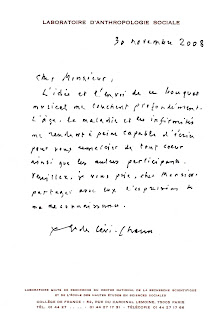 LABORATOIRE D'ANTHROPOLOGIE SOCIALE
30 novembre 2008
Cher Monsieur,
L'idée et l'envoi de ce bouquet
musical me touchent profondément.
L'âge, la maladie et les infirmités
me rendent à peine capable d'écrire
pour vous remercier de tout cœur
ainsi que les autres participants.
Veuillez, je vous prie, cher Monsieur
partager avec eux l'expression de
ma reconnaissance.
Claude Lévi-Strauss
LABORATOIRE MIXTE DE RECHERCHE DU CENTRE NATIONAL DE LA RECHERCHE SCIENTIFIQUE
ET DE L'ÉCOLE DES HAUTES ÉTUDES EN SCIENCES SOCIALES
COLLÈGE DE FRANCE - 52, RUE DU CARDINAL LEMOINE, 75005 PARIS